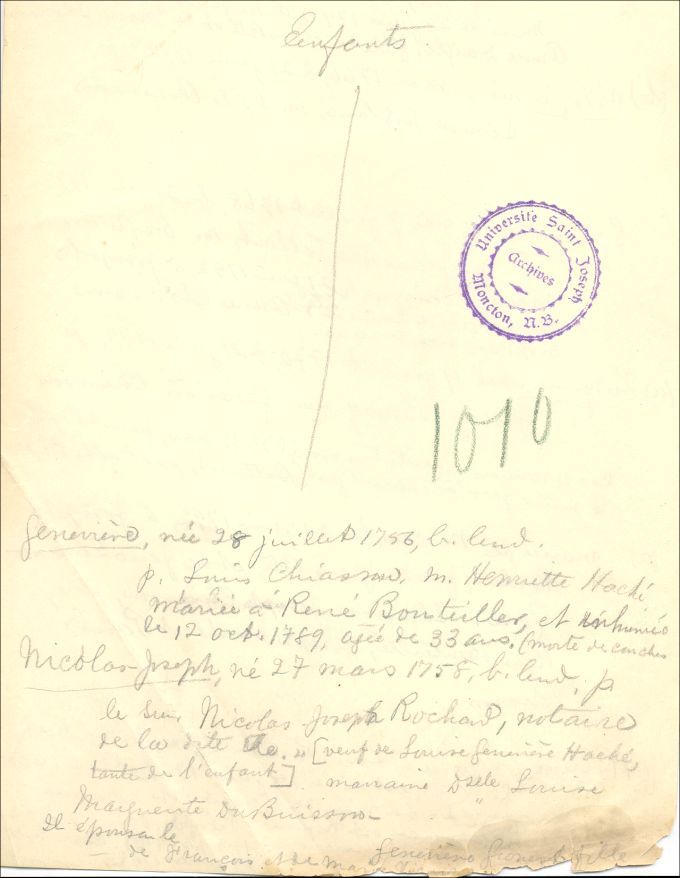 Enfants
Université Saint Joseph
Archives
Moncton, N.B.
1010
Geneviève, née 28 juillet 1756, b. lend.
p. Louis Chiasson, m. Henriette Haché
mariée à René Bouteiller, et inhumée
le 12 oct. 1789, agée de 33 ans. (morte de couches
Nicolas-Joseph, né 27 mars 1758, b. lend, p
le Sieur Nicolas Joseph Rochard, notaire
de la dite Ile. » [veuf de Louise Geneviève Haché,
tante de l'enfant] marraine Dselle Louise
Marguerite Du Buisson
Il épousa le
Geneviève fille
de François et de Marie